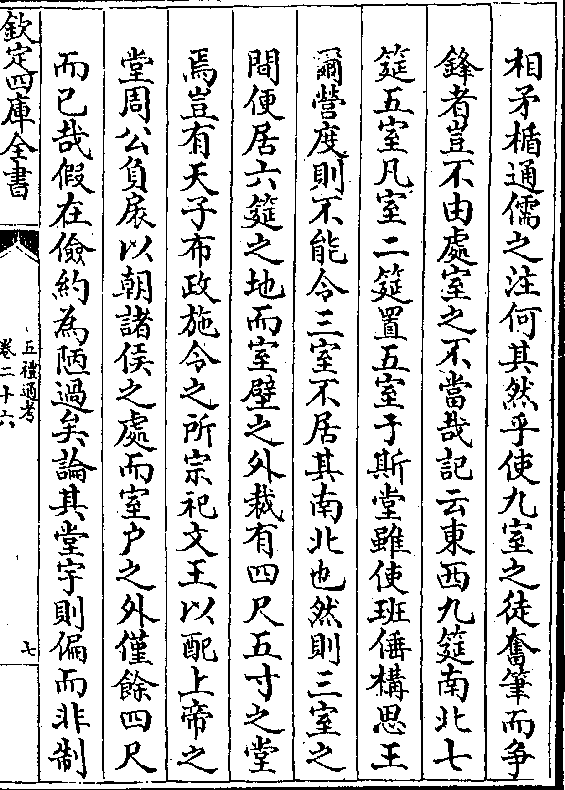 相矛楯通儒之注何其然乎使九室之徒奮筆而争
鋒者豈不由處室之不當哉記云東西九筵南北七
筵五室凡室二筵置五室于斯堂雖使班倕構思王
爾營度則不能令三室不居其南北也然則三室之
間便居六筵之地而室壁之外裁有四尺五寸之堂
焉豈有天子布政施令之所宗祀文王以配上帝之
堂周公負扆以朝諸侯之處而室户之外僅餘四尺
而已哉假在儉約為陋過矣論其堂宇則偏而非制
欽定四庫全書
五禮通考
卷二十六
七